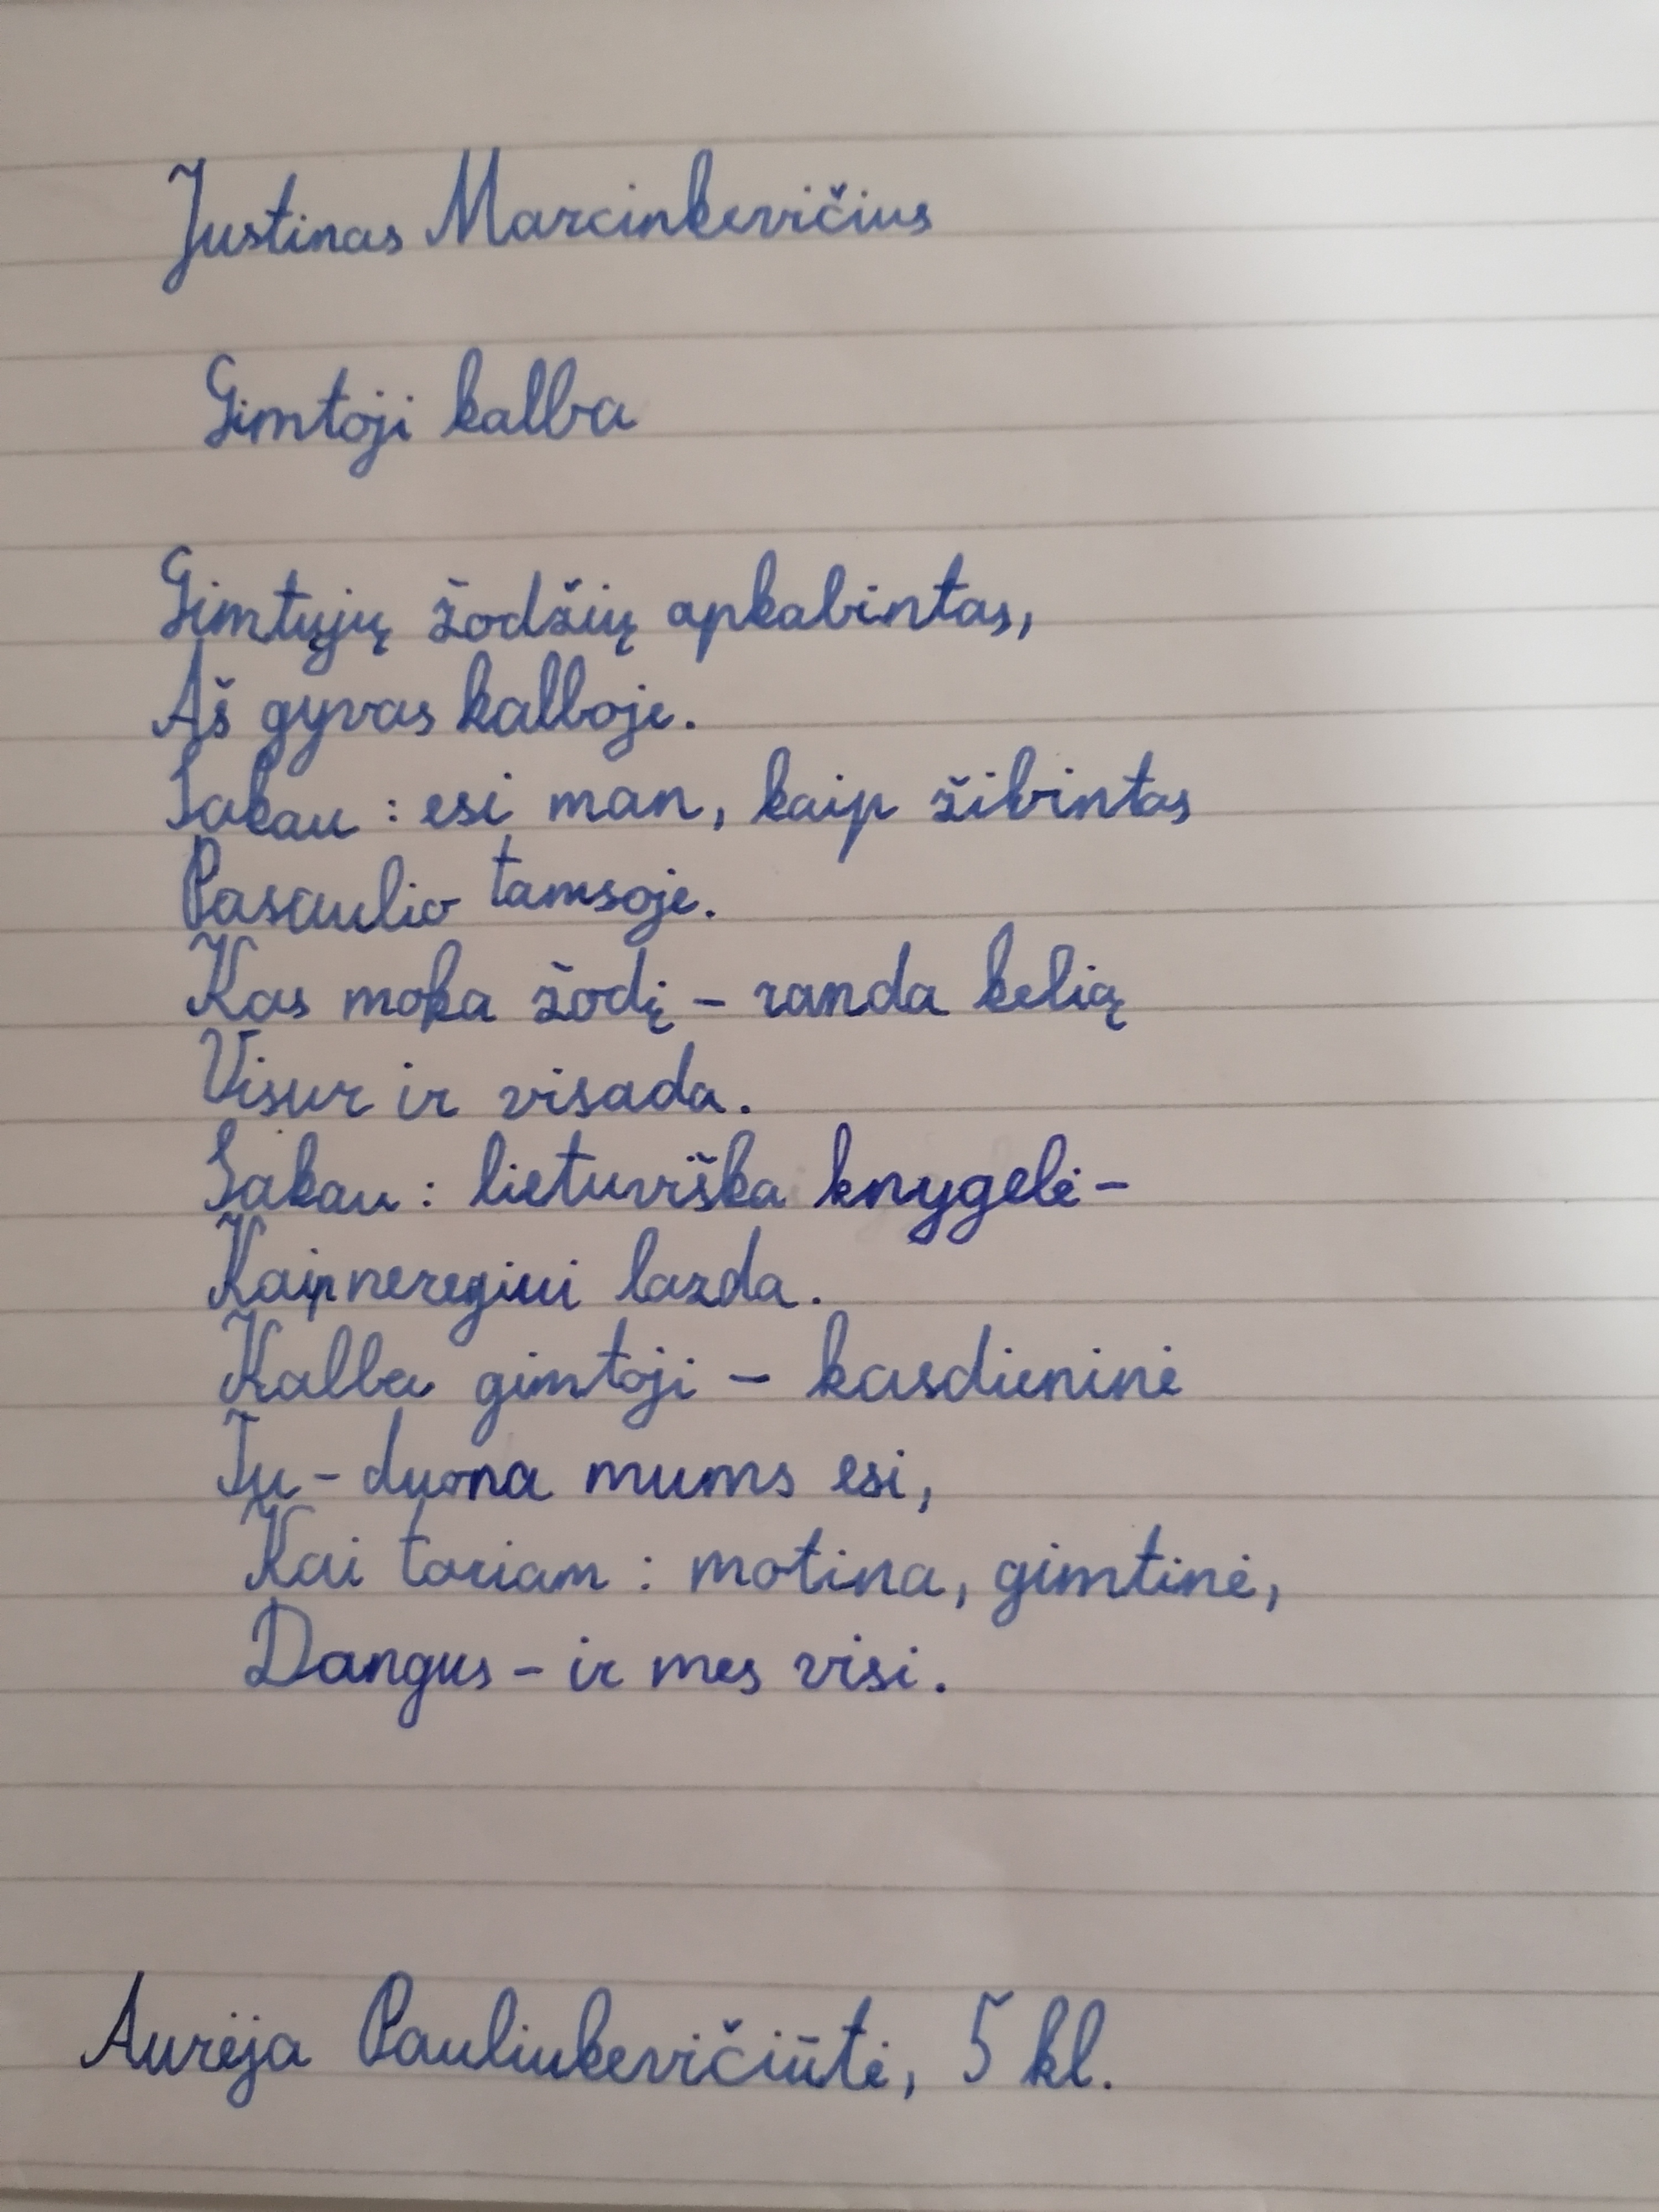 Justinas Marcinkevičius
Gimtoji kalba
Gimtųjų žodžių apkabintas,
Aš gyvas kalboje.
Sakau : esi man, kaip žibintas
Pasaulio tamsoje.
Kas moka žodį – randa kelią
Visur ir visada.
Sakau : lietuviška knygelė –
Kaip neregiui lazda.
Kalba gimtoji – kasdieninė
Tu – duona mums esi,
Kai tariam : motina, gimtinė,
Dangus – ir mes visi.
Aurėja Pauliukevičiūtė, 5 kl.